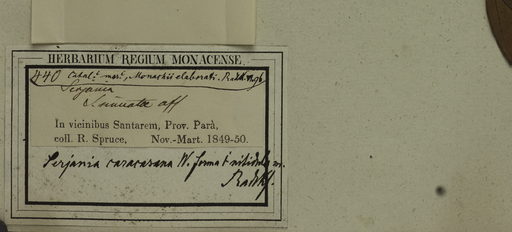 HERBARIUM REGIUM MONACENSE.
440 Catal. mst., Monachii elaborati. Radlk.
Serjania
sinuatae aff
In vicinibus Santarem, Prov. Parà,
coll. R. Spruce, Nov.-Mart. 1849-50.
Serjania caracasana W. forma nitidula m.
Radlkf.